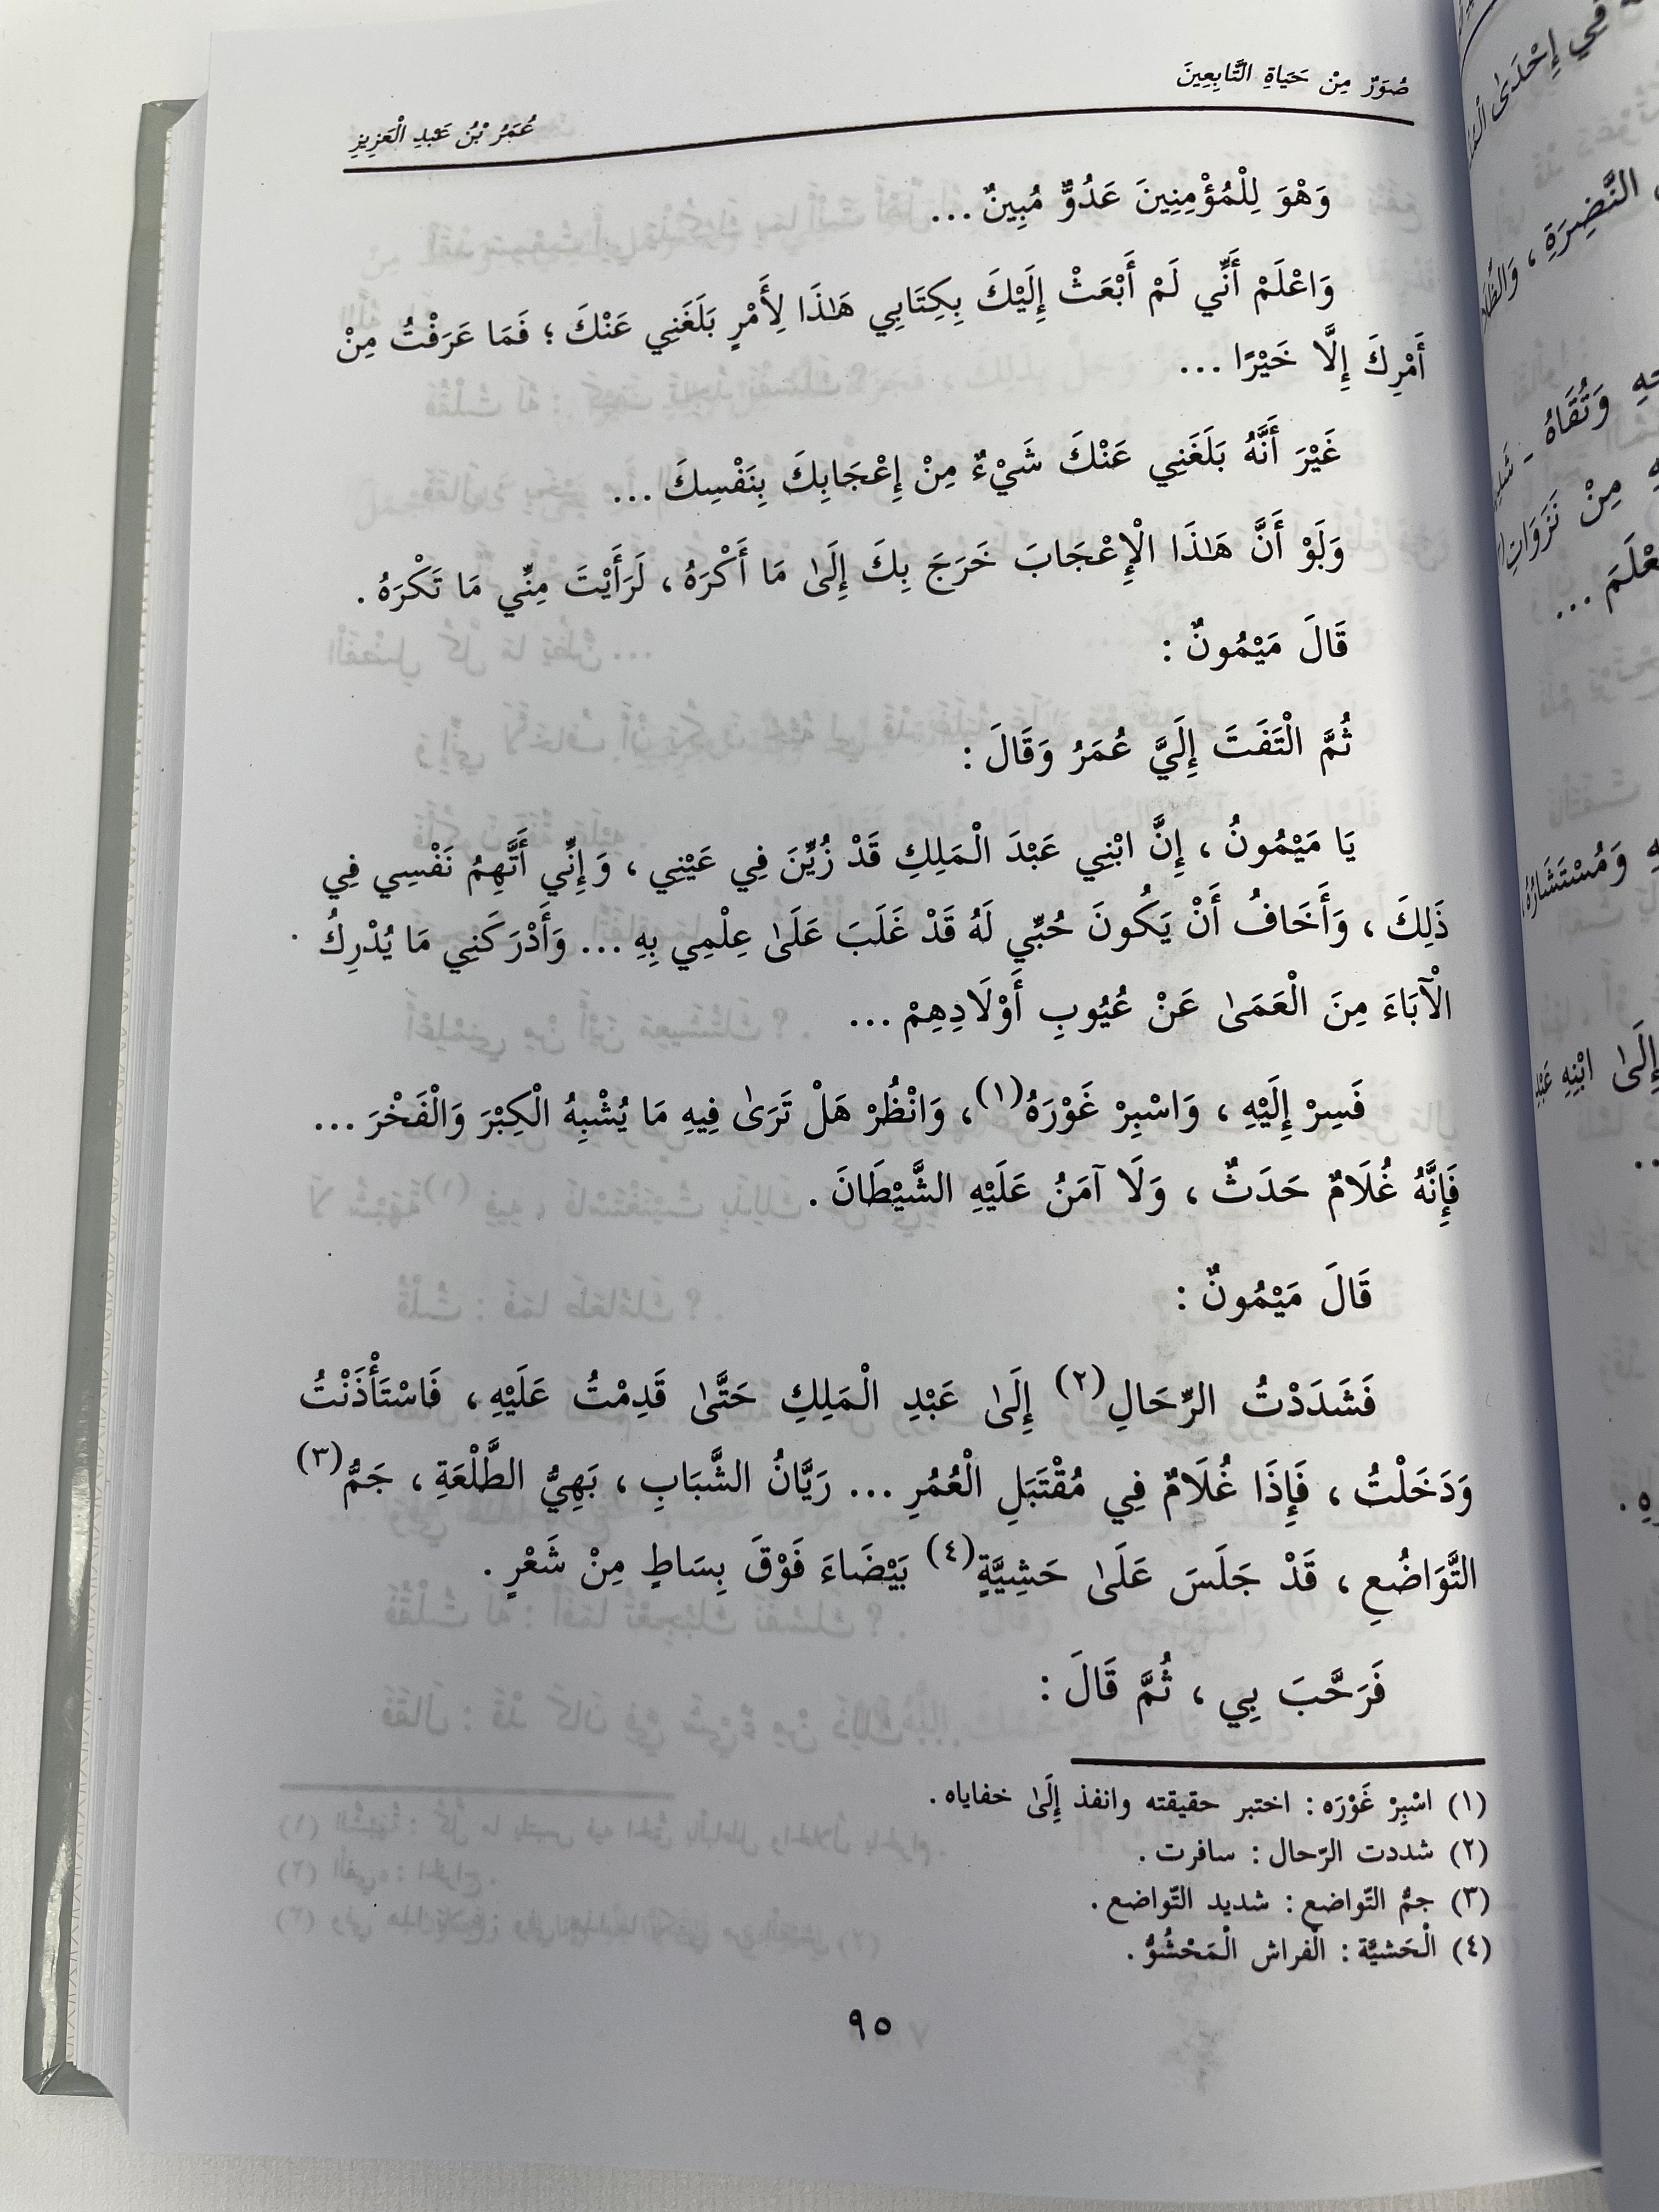 صُوَرٌ مِنْ حَيَاةِ التَّابِعِينَ
عُمَرُ بْنُ عَبْدِ الْعَزِيزِ
وَهْوَ لِلْمُؤْمِنِينَ عَدُوٌّ مُبِينٌ ...
وَاعْلَمْ أَنِّي لَمْ أَبْعَثْ إِلَيْكَ بِكِتَابِي هَٰذَا لِأَمْرٍ بَلَغَنِي عَنْكَ ؛ فَمَا عَرَفْتُ مِنْ
أَمْرِكَ إِلَّا خَيْرًا ...
غَيْرَ أَنَّهُ بَلَغَنِي عَنْكَ شَيْءٌ مِنْ إِعْجَابِكَ بِنَفْسِكَ ...
وَلَوْ أَنَّ هَٰذَا الْإِعْجَابَ خَرَجَ بِكَ إِلَىٰ مَا أَكْرَهُ ، لَرَأَيْتَ مِنِّي مَا تَكْرَهُ .
قَالَ مَيْمُونٌ :
ثُمَّ الْتَفَتَ إِلَيَّ عُمَرُ وَقَالَ :
يَا مَيْمُونُ ، إِنَّ ابْنِي عَبْدَ الْمَلِكِ قَدْ زُيِّنَ فِي عَيْنِي ، وَإِنِّي أَتَّهِمُ نَفْسِي فِي
ذَلِكَ ، وَأَخَافُ أَنْ يَكُونَ حُبِّي لَهُ قَدْ غَلَبَ عَلَىٰ عِلْمِي بِهِ ... وَأَدْرَكَنِي مَا يُدْرِكُ
الْآبَاءَ مِنَ الْعَمَىٰ عَنْ عُيُوبِ أَوْلَادِهِمْ ...
فَسِرْ إِلَيْهِ ، وَاسْبِرْ غَوْرَهُ(١) ، وَانْظُرْ هَلْ تَرَىٰ فِيهِ مَا يُشْبِهُ الْكِبْرَ وَالْفَخْرَ ...
فَإِنَّهُ غُلَامٌ حَدَثٌ ، وَلَا آمَنُ عَلَيْهِ الشَّيْطَانَ .
قَالَ مَيْمُونٌ :
فَشَدَدْتُ الرِّحَالِ(٢) إِلَىٰ عَبْدِ الْمَلِكِ حَتَّىٰ قَدِمْتُ عَلَيْهِ ، فَاسْتَأْذَنْتُ
وَدَخَلْتُ ، فَإِذَا غُلَامٌ فِي مُقْتَبَلِ الْعُمُرِ ... رَيَّانُ الشَّبَابِ ، بَهِيُّ الطَّلْعَةِ ، جَمُّ(٣)
التَّوَاضُعِ ، قَدْ جَلَسَ عَلَىٰ حَشِيَّةٍ(٤) بَيْضَاءَ فَوْقَ بِسَاطٍ مِنْ شَعْرٍ .
فَرَحَّبَ بِي ، ثُمَّ قَالَ :
(١) اسْبِرْ غَوْرَه : اختبر حقيقته وانفذ إِلَىٰ خفاياه .
(٢) شددت الرّحال : سافرت .
(٣) جمُّ التّواضع : شديد التّواضع .
(٤) الْحَشيَّة : الْفراش الْمَحْشُوُّ .
٩٥
فِي إِحْدَىٰ
النَّضِرَةِ ،
وَتُقَاهُ
مِنْ نَزَوَاتِ
...
وَمُسْتَشَارُهُ
إِلَىٰ ابْنِهِ